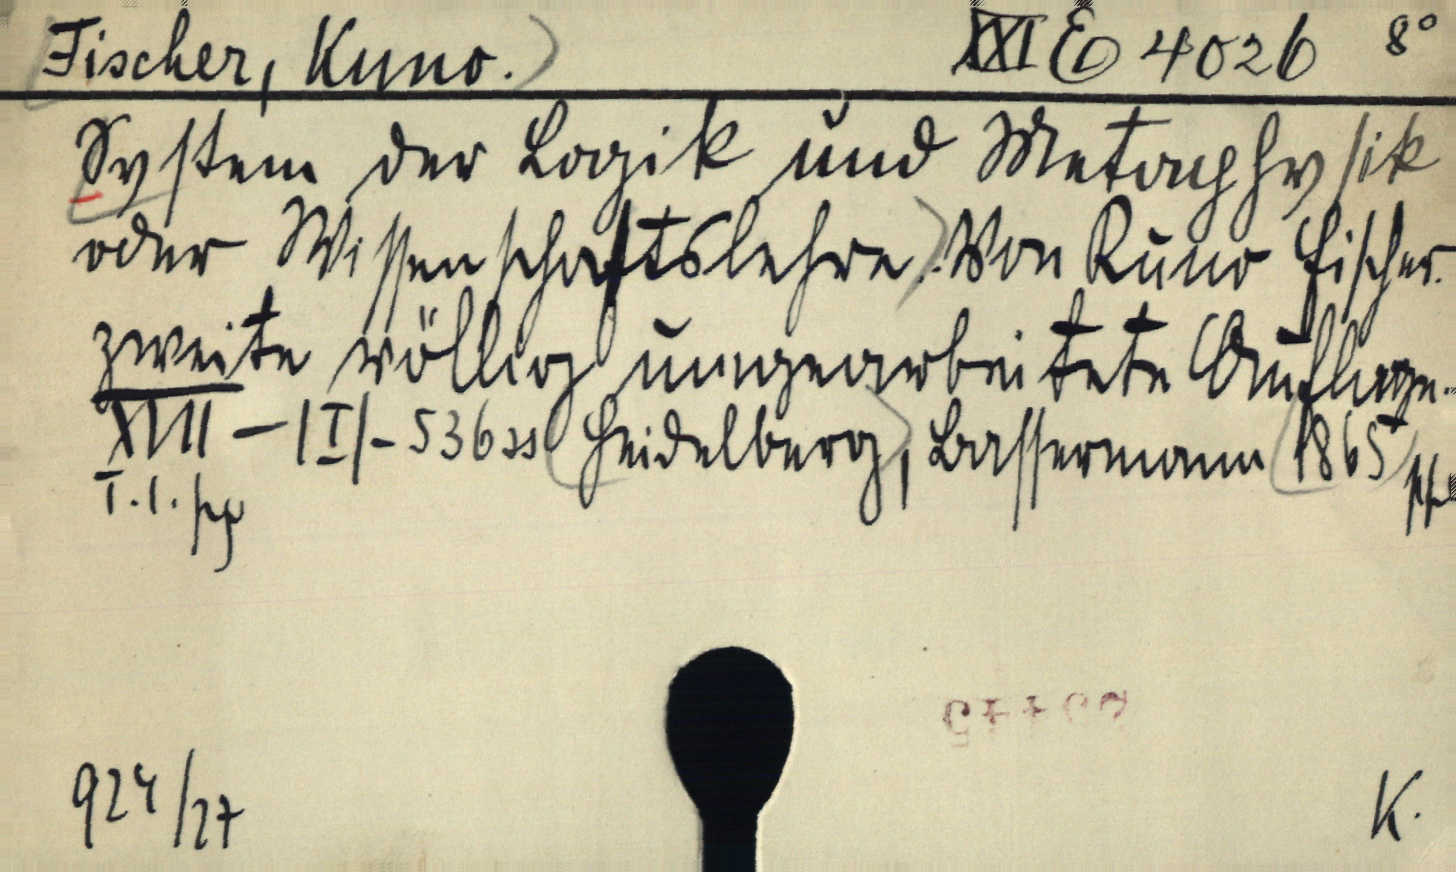 Fischer, Kuno. XXI E 4026 8°
System der Logik und Metaphysik
oder Wissenschaftslehre. Von Kuno Fischer.
Zweite völlig umgearbeitete Auflage.
XVIII – |I| – 536 ss Heidelberg, Bassermann 1865
T. 1.
924/27 K.